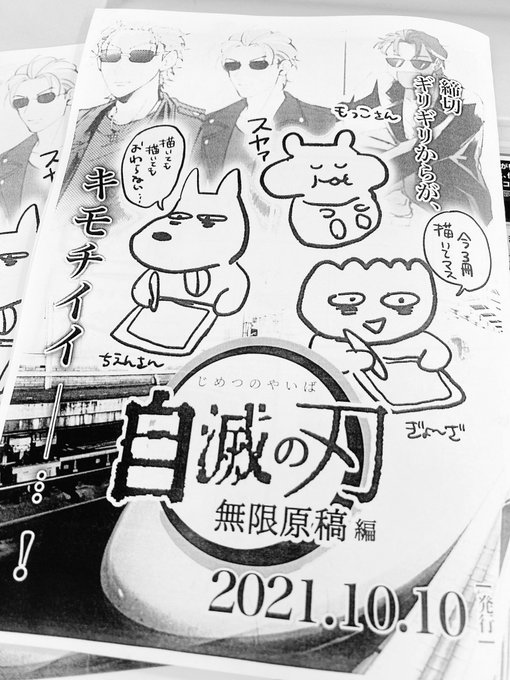 締切
ギリギリからが、
キモチイイ――…！
もっこさん
スヤァ
描いても
描いても
おわらない…
ちえんさん
今3冊
描いてマス
ぎょ〜ざ
じめつのやいば
自滅の刃
無限原稿編
2021.10.10
発行